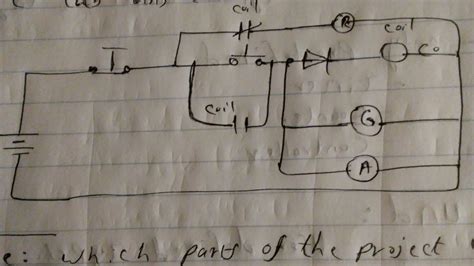 coil
R
coil
Co
coil
G
A
e: which parts of the project